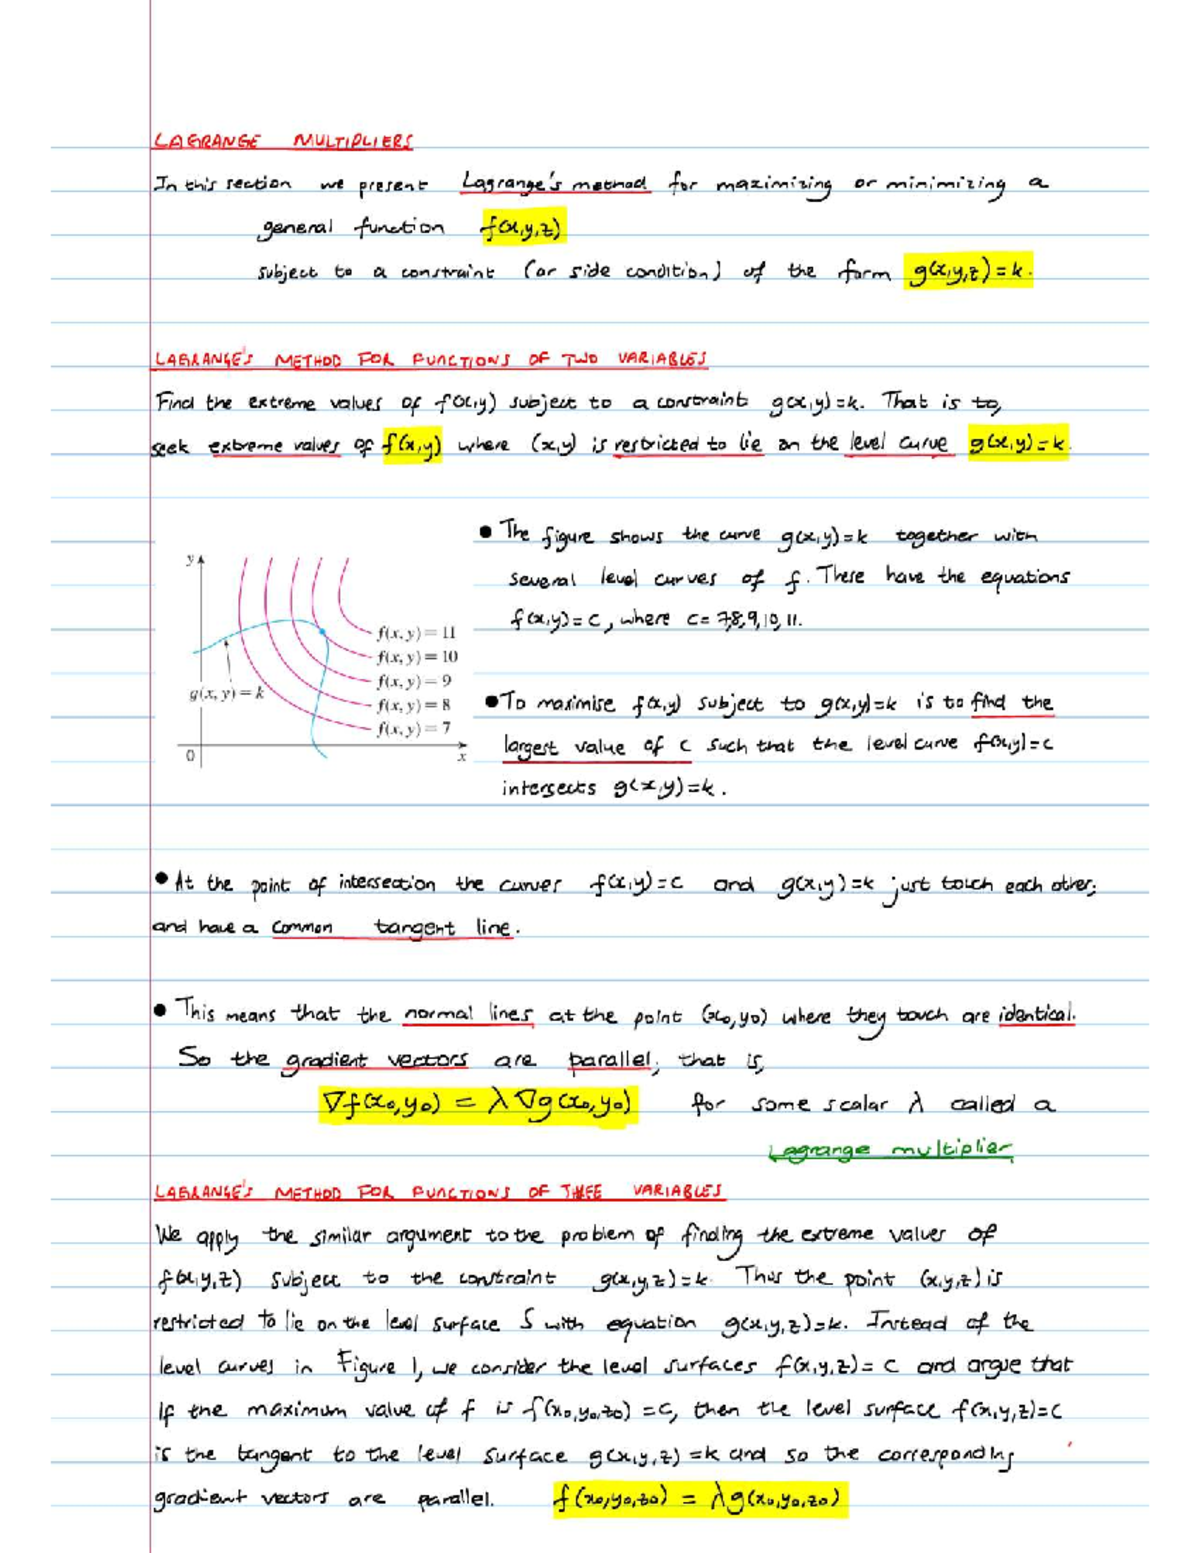 LAGRANGE MULTIPLIERS
In this section we present Lagrange's method for maximizing or minimizing a
general function f(x,y,z)
subject to a constraint (or side condition) of the form g(x,y,z) = k.
LAGRANGE'S METHOD FOR FUNCTIONS OF TWO VARIABLES
Find the extreme values of f(x,y) subject to a constraint g(x,y)=k. That is to,
seek extreme values of f(x,y) where (x,y) is restricted to lie on the level curve g(x,y)=k.
• The figure shows the curve g(x,y)=k together with
several level curves of f. These have the equations
f(x,y)=c, where c= 7,8,9,10,11.
y
f(x, y) = 11
f(x, y) = 10
f(x, y) = 9
g(x, y) = k
f(x, y) = 8
f(x, y) = 7
0
x
• To maximise f(x,y) subject to g(x,y)=k is to find the
largest value of c such that the level curve f(x,y)=c
intersects g(x,y)=k.
• At the point of intersection the curves f(x,y)=c and g(x,y)=k just touch each other,
and have a common tangent line.
• This means that the normal lines at the point (x₀,y₀) where they touch are identical.
So the gradient vectors are parallel, that is,
∇f(x₀,y₀) = λ∇g(x₀,y₀) for some scalar λ called a
Lagrange multiplier.
LAGRANGE'S METHOD FOR FUNCTIONS OF THREE VARIABLES
We apply the similar argument to the problem of finding the extreme values of
f(x,y,z) subject to the constraint g(x,y,z)=k. Thus the point (x,y,z) is
restricted to lie on the level surface S with equation g(x,y,z)=k. Instead of the
level curves in Figure 1, we consider the level surfaces f(x,y,z)=c and argue that
if the maximum value of f is f(x₀,y₀,z₀)=c, then the level surface f(x,y,z)=c
is the tangent to the level surface g(x,y,z)=k and so the corresponding
gradient vectors are parallel. f(x₀,y₀,z₀) = λg(x₀,y₀,z₀)